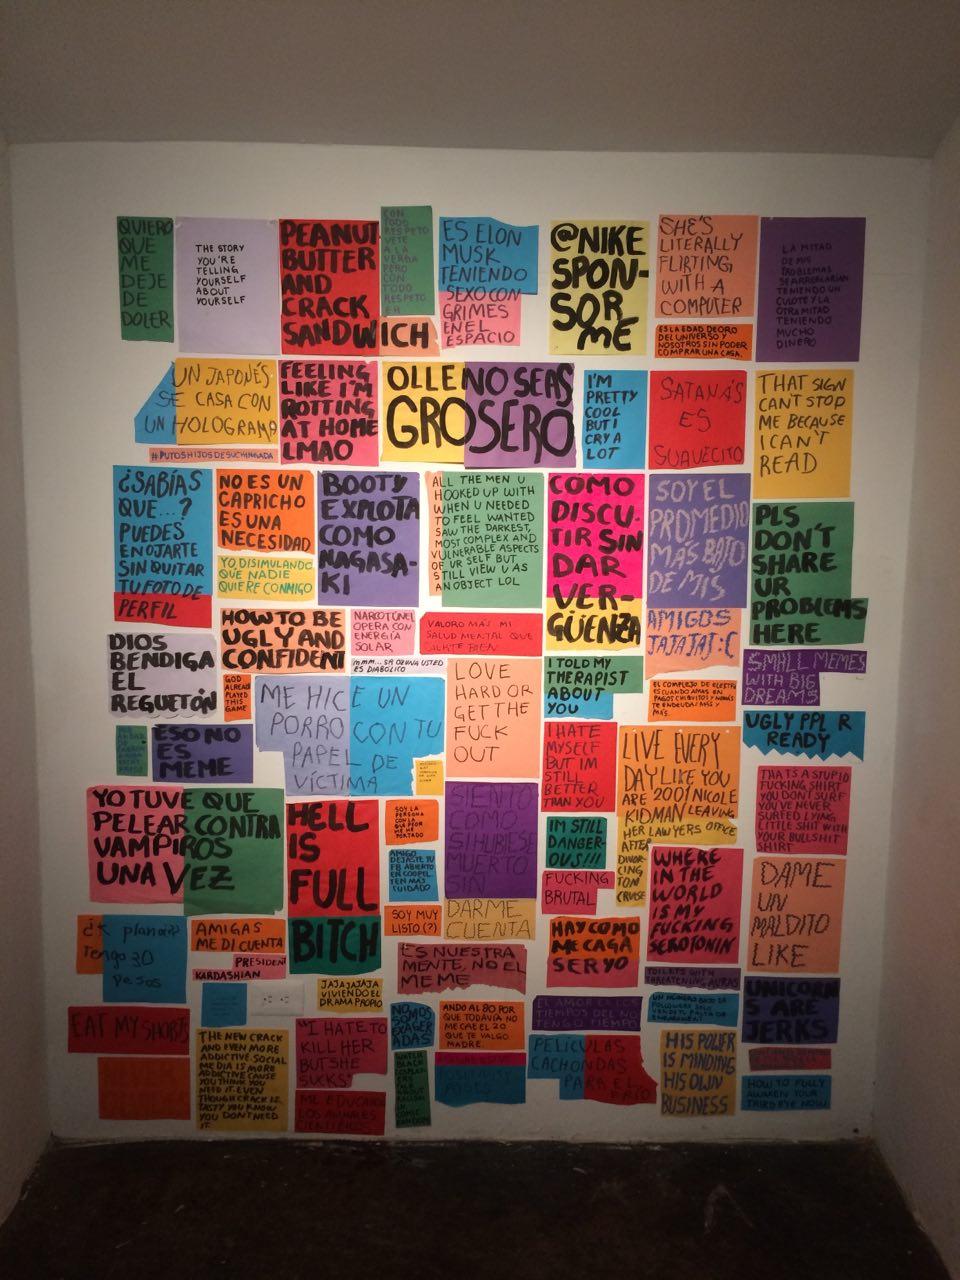 QUIERO
QUE
ME
DEJE
DE
DOLER
THE STORY
YOU'RE
TELLING
YOURSELF
ABOUT
YOURSELF
PEANUT
BUTTER
AND
CRACK
SANDWICH
CON
TODO
RESPETO
VETE
A LA
VERGA
PERO
CON
TODO
RESPETO
ES ELON
MUSK
TENIENDO
SEXO CON
GRIMES
EN EL
ESPACIO
@NIKE
SPON-
SOR
ME
SHE'S
LITERALLY
FLIRTING
WITH A
COMPUTER
ES LA EDAD DE ORO
DEL UNIVERSO Y
NOSOTROS SIN PODER
COMPRAR UNA CASA.
LA MITAD
DE MIS
PROBLEMAS
SE ARREGLARIAN
TENIENDO UN
CULOTE Y LA
OTRA MITAD
TENIENDO
MUCHO
DINERO
UN JAPONÉS
SE CASA CON
UN HOLOGRAMA
#PUTOSHIJOSDESUCHINGADA
FEELING
LIKE I'M
ROTTING
AT HOME
LMAO
OLLE NO SEAS
GROSERO
I'M
PRETTY
COOL
BUT I
CRY A
LOT
SATANÁS
ES
SUAVECITO
THAT SIGN
CAN'T STOP
ME BECAUSE
I CAN'T
READ
¿SABÍAS
QUE...?
PUEDES
ENOJARTE
SIN QUITAR
TU FOTO DE
PERFIL
NO ES UN
CAPRICHO
ES UNA
NECESIDAD
YO DISIMULANDO
QUE NADIE
QUIERE CONMIGO
BOOTY
EXPLOTA
COMO
NAGASA-
KI
ALL THE MEN U
HOOKED UP WITH
WHEN U NEEDED
TO FEEL WANTED
SAW THE DARKEST,
MOST COMPLEX AND
VULNERABLE ASPECTS
OF UR SELF BUT
STILL VIEW U AS
AN OBJECT LOL
COMO
DISCU-
TIR SIN
DAR
VER-
GÜENZA
SOY EL
PROMEDIO
MÁS BAJO
DE MIS
AMIGOS
JAJAJAJ :C
PLS
DON'T
SHARE
UR
PROBLEMS
HERE
DIOS
BENDIGA
EL
REGUETÓN
HOW TO BE
UGLY AND
CONFIDENT
NARCOTÚNEL
OPERA CON
ENERGÍA
SOLAR
VALORO MÁS MI
SALUD MENTAL QUE
CAERTE BIEN
GOD
ALREADY
PLAYED
THIS
GAME
ME HICE UN
PORRO CON TU
PAPEL DE
VÍCTIMA
LOVE
HARD OR
GET THE
FUCK
OUT
I TOLD MY
THERAPIST
ABOUT
YOU
EL COMPLEJO DE ELEKTRA
ES CUANDO AMAS EN
PAGOS CHIQUITOS Y NOMÁS
TE ENDEUDAS MÁS Y
MÁS.
SMALL MEMES
WITH BIG
DREAMS
UGLY PPL R
READY
ESO NO
ES
MEME
I HATE
MYSELF
BUT IM
STILL
BETTER
THAN YOU
LIVE EVERY
DAY LIKE YOU
ARE 2001 NICOLE
KIDMAN LEAVING
HER LAWYERS OFFICE
AFTER
DIVOR-
CING
TOM
CRUISE
THATS A STUPID
FUCKING SHIRT
YOU DONT SURF
YOU'VE NEVER
SURFED LYING
LITTLE SHIT WITH
YOUR BULLSHIT
SHIRT
YO TUVE QUE
PELEAR CONTRA
VAMPIROS
UNA VEZ
HELL
IS
FULL
BITCH
SOY LA
PERSONA
CON LA
QUE PEOR
ME HE
PORTADO
AMIGO
DEJASTE TU
FB ABIERTO
EN COPPEL
TEN MÁS
CUIDADO
SIENTO
COMO
SI HUBIESE
MUERTO
SIN
DARME
CUENTA
IM STILL
DANGER-
OUS!!!
FUCKING
BRUTAL
WHERE
IN THE
WORLD
IS MY
FUCKING
SEROTONIN
DAME
UN
MALDITO
LIKE
planazo
Tengo 30
pesos
AMIGAS
ME DI CUENTA
PRESIDENT
KARDASHIAN
SOY MUY
LISTO (?)
ES NUESTRA
MENTE, NO EL
MEME
HAY COMO
ME CAGA
SER YO
TOILETS WITH
THREATENING AURAS
UNICORNS
ARE
JERKS
JAJAJAJAJA
VIVIENDO EL
DRAMA PROPIO
EAT MY SHORTS
THE NEW CRACK
AND EVEN MORE
ADDICTIVE. SOCIAL
MEDIA IS MORE
ADDICTIVE CAUSE
YOU THINK YOU
NEED IT. EVEN
THOUGH CRACK IS
TASTY YOU KNOW
YOU DON'T NEED
IT.
"I HATE TO
KILL HER
BUT SHE
SUCKS"
ME EDUCARON
LOS ANIMALES
CIENTÍFICOS
NO
SOMOS
EXAGER
ADAS
ANDO AL 80 POR
QUE TODAVÍA NO
ME CAE EL 20
QUE TE VALGO
MADRE.
EL AMOR EN LOS
TIEMPOS DEL NO
TENGO TIEMPO
PELÍCULAS
CACHONDAS
PARA EL
FRÍO
HIS POWER
IS MINDING
HIS OWN
BUSINESS
HOW TO FULLY
AWAKEN YOUR
THIRD EYE NOW